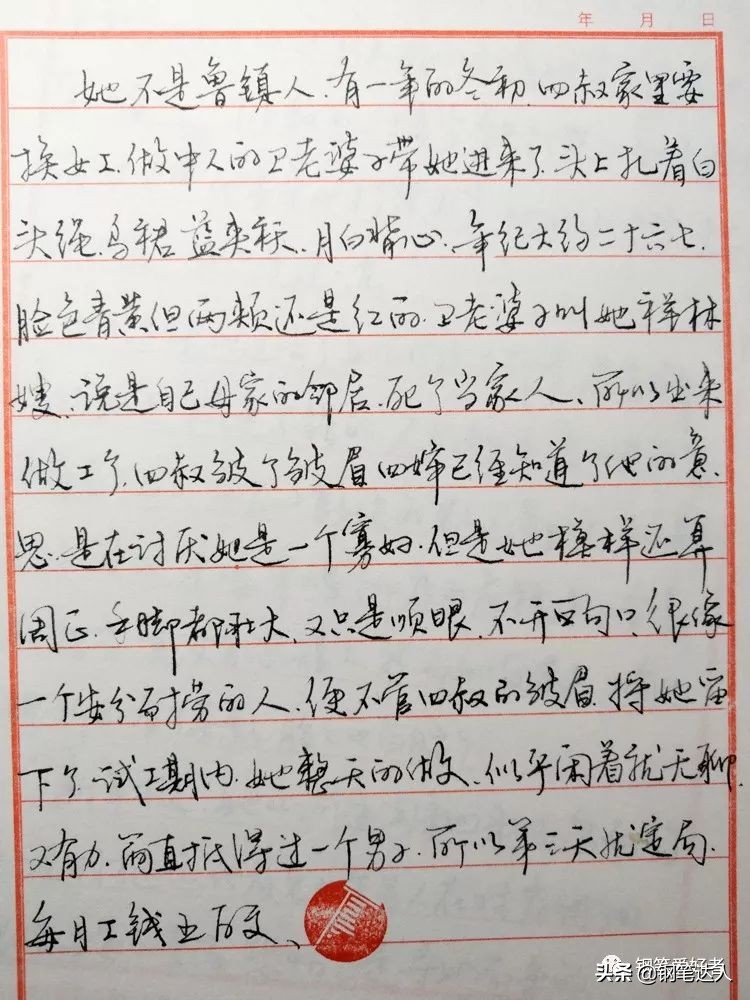 年 月 日
她不是鲁镇人.有一年的冬初.四叔家里要
换女工.做中人的卫老婆子带她进来了.头上扎着白
头绳.乌裙.蓝夹袄.月白背心.年纪大约二十六七.
脸色青黄但两颊还是红的.卫老婆子叫她祥林
嫂.说是自己母家的邻居.死了当家人、所以出来
做工了.四叔皱了皱眉四婶已经知道了他的意
思.是在讨厌她是一个寡妇.但是她模样还算
周正.手脚都壮大.又只是顺眼.不开一句口.很像
一个安分耐劳的人.便不管四叔的皱眉.将她留
下了.试工期内.她整天的做.似乎闲着就无聊.
又有力.简直抵得过一个男子.所以第三天就定局.
每月工钱五百文、
钢笔爱好者
头条@钢笔达人